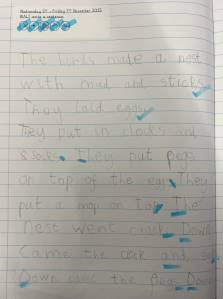 Wednesday 5th - Friday 7th November 2025
WALT: write a sentence.
The birds made a nest
with mud and sticks
They laid eggs.
They put in clocks and
They put pegs
on top of the egg They
put a mop on top. The
Nest went crack. Down
Came the clock and
Down came the Pegs Down